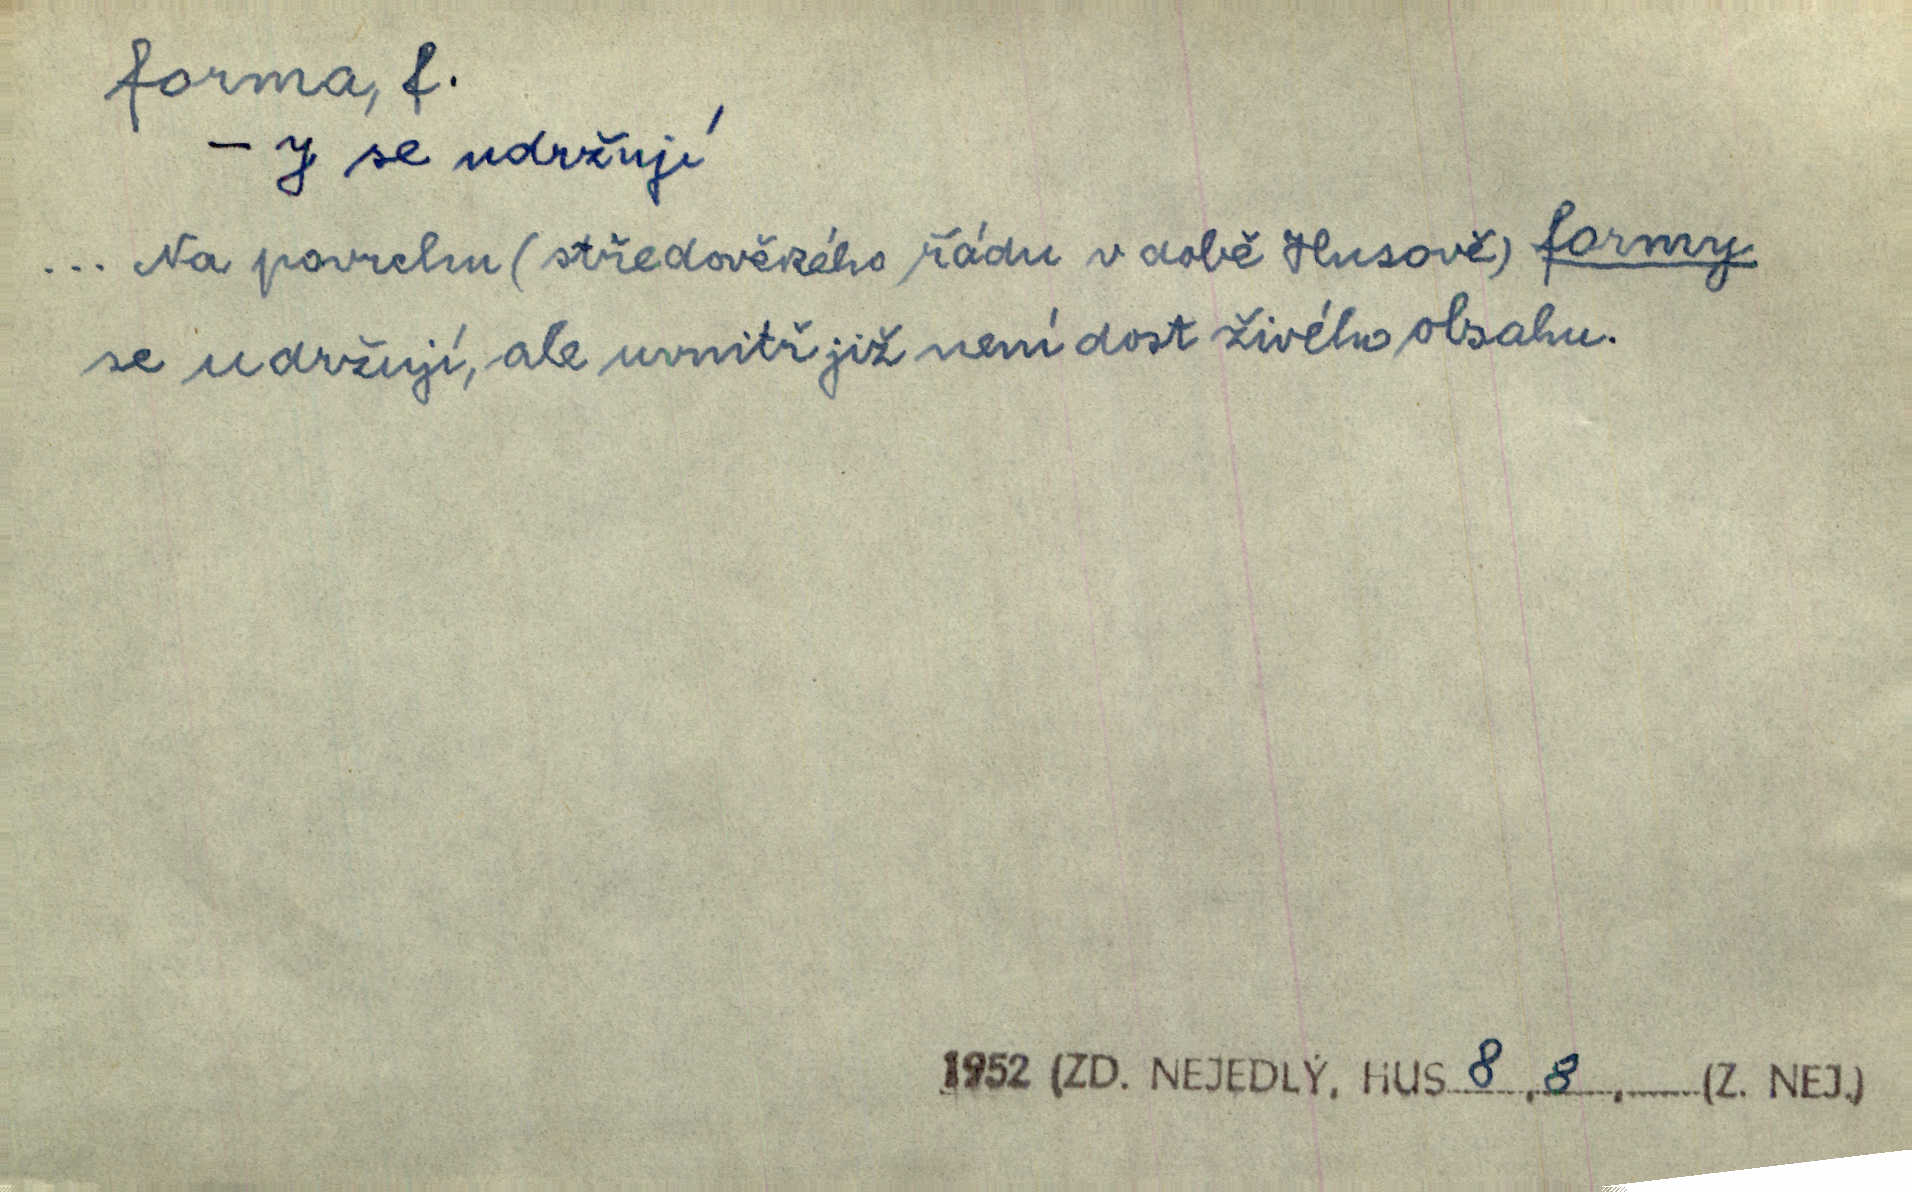 forma, f.
- y se udržují
... Na povrchu (středověkého řádu v době Husově) formy
se udržují, ale uvnitř již není dost živého obsahu.
1952 (ZD. NEJEDLÝ, HUS 8, 8, (Z. NEJ.)